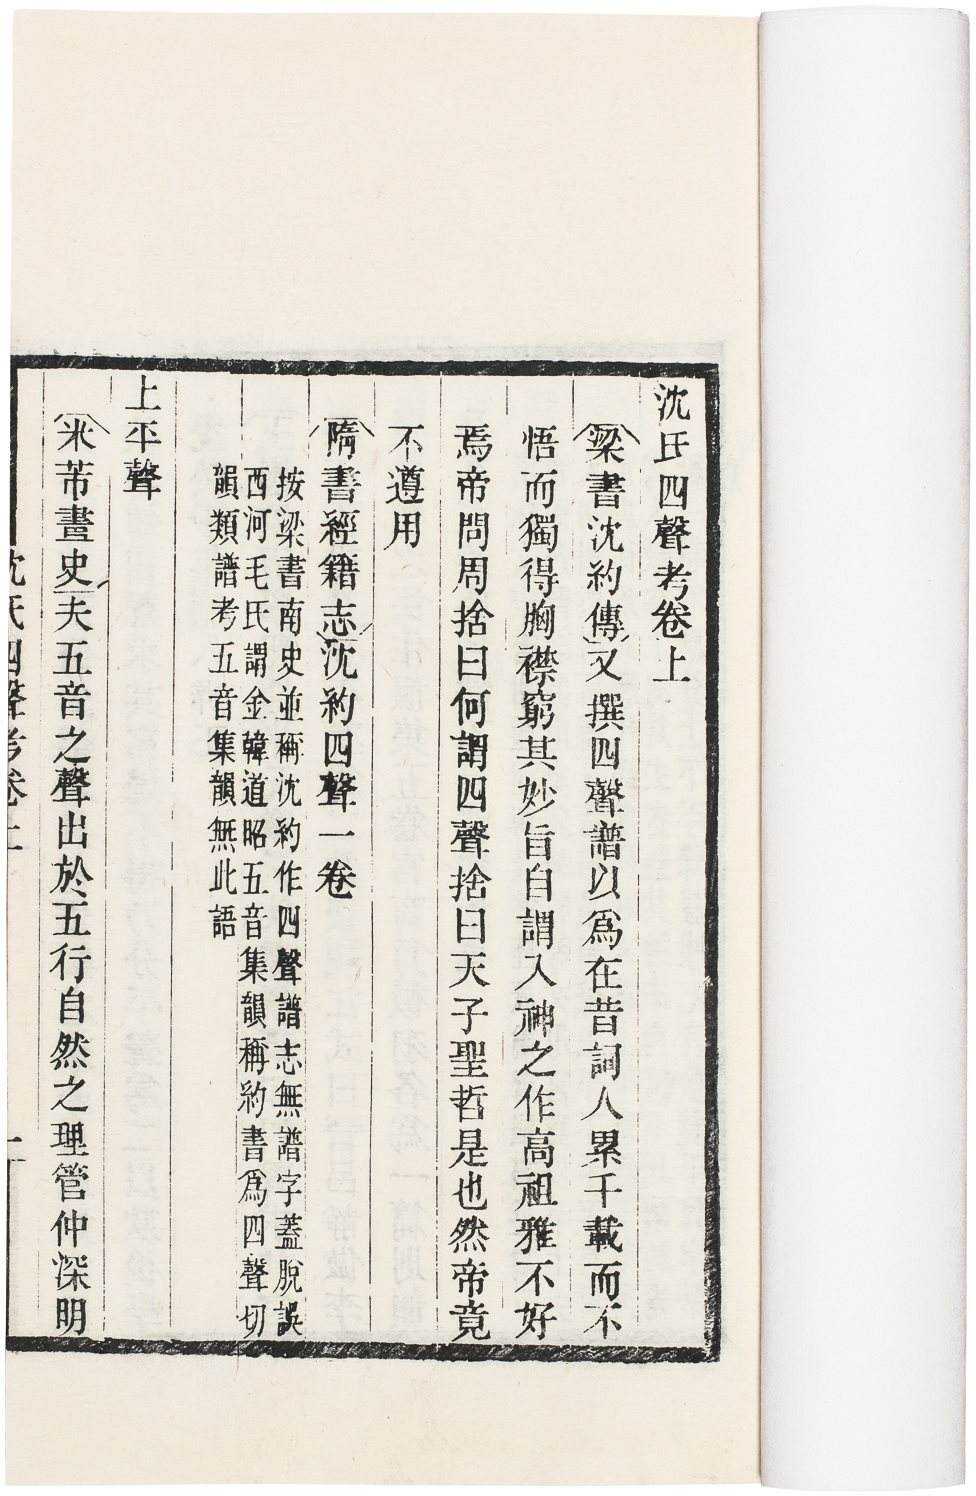 沈氏四聲考卷上
梁書沈約傳又撰四聲譜以爲在昔詞人累千載而不
悟而獨得胸襟窮其妙旨自謂入神之作高祖雅不好
焉帝問周捨曰何謂四聲捨曰天子聖哲是也然帝竟
不遵用
隋書經籍志沈約四聲一卷
按梁書南史並稱沈約作四聲譜志無譜字蓋脫誤
西河毛氏謂金韓道昭五音集韻稱約書爲四聲切
韻類譜考五音集韻無此語
上平聲
米芾畫史夫五音之聲出於五行自然之理管仲深明
沈氏四聲考卷上 一